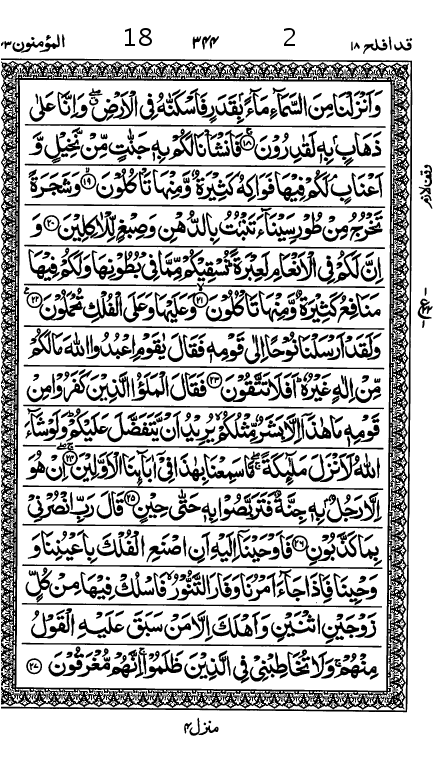 قد افلح ١٨ 2 ٣٤٤ 18 المؤمنون ٢٣
وَاَنْزَلْنَا مِنَ السَّمَآءِ مَآءًۢ بِقَدَرٍ فَاَسْكَنّٰهُ فِی الْاَرْضِ ۖ وَاِنَّا عَلٰی
ذَهَابٍۭ بِهٖ لَقٰدِرُوْنَ ۚ﴿١٨﴾ فَاَنْشَاْنَا لَكُمْ بِهٖ جَنّٰتٍ مِّنْ نَّخِیْلٍ وَّ
اَعْنَابٍ ۘ لَكُمْ فِیْهَا فَوَاكِهُ كَثِیْرَةٌ وَّمِنْهَا تَاْكُلُوْنَ ۙ﴿١٩﴾ وَشَجَرَةً
تَخْرُجُ مِنْ طُوْرِ سَیْنَآءَ تَنْۢبُتُ بِالدُّهْنِ وَصِبْغٍ لِّلْاٰكِلِیْنَ ﴿٢٠﴾ وَ
اِنَّ لَكُمْ فِی الْاَنْعَامِ لَعِبْرَةً ؕ نُسْقِیْكُمْ مِّمَّا فِیْ بُطُوْنِهَا وَلَكُمْ فِیْهَا
مَنَافِعُ كَثِیْرَةٌ وَّمِنْهَا تَاْكُلُوْنَ ۙ﴿٢١﴾ وَعَلَیْهَا وَعَلَی الْفُلْكِ تُحْمَلُوْنَ ﴿٢٢﴾
وَلَقَدْ اَرْسَلْنَا نُوْحًا اِلٰی قَوْمِهٖ فَقَالَ یٰقَوْمِ اعْبُدُوا اللّٰهَ مَا لَكُمْ
مِّنْ اِلٰهٍ غَیْرُهٗ ؕ اَفَلَا تَتَّقُوْنَ ﴿٢٣﴾ فَقَالَ الْمَلَؤُا الَّذِیْنَ كَفَرُوْا مِنْ
قَوْمِهٖ مَا هٰذَاۤ اِلَّا بَشَرٌ مِّثْلُكُمْ ۙ یُرِیْدُ اَنْ یَّتَفَضَّلَ عَلَیْكُمْ ؕ وَلَوْ شَآءَ
اللّٰهُ لَاَنْزَلَ مَلٰٓىِٕكَةً ۖۚ مَّا سَمِعْنَا بِهٰذَا فِیْۤ اٰبَآىِٕنَا الْاَوَّلِیْنَ ۚ﴿٢٤﴾ اِنْ هُوَ
اِلَّا رَجُلٌۢ بِهٖ جِنَّةٌ فَتَرَبَّصُوْا بِهٖ حَتّٰی حِیْنٍ ﴿٢٥﴾ قَالَ رَبِّ انْصُرْنِیْ
بِمَا كَذَّبُوْنِ ﴿٢٦﴾ فَاَوْحَیْنَاۤ اِلَیْهِ اَنِ اصْنَعِ الْفُلْكَ بِاَعْیُنِنَا وَ
وَحْیِنَا فَاِذَا جَآءَ اَمْرُنَا وَفَارَ التَّنُّوْرُ ۙ فَاسْلُكْ فِیْهَا مِنْ كُلٍّ
زَوْجَیْنِ اثْنَیْنِ وَاَهْلَكَ اِلَّا مَنْ سَبَقَ عَلَیْهِ الْقَوْلُ
مِنْهُمْ ۚ وَلَا تُخَاطِبْنِیْ فِی الَّذِیْنَ ظَلَمُوْا ۚ اِنَّهُمْ مُّغْرَقُوْنَ ﴿٢٧﴾
وقف لازم
منزل ٤